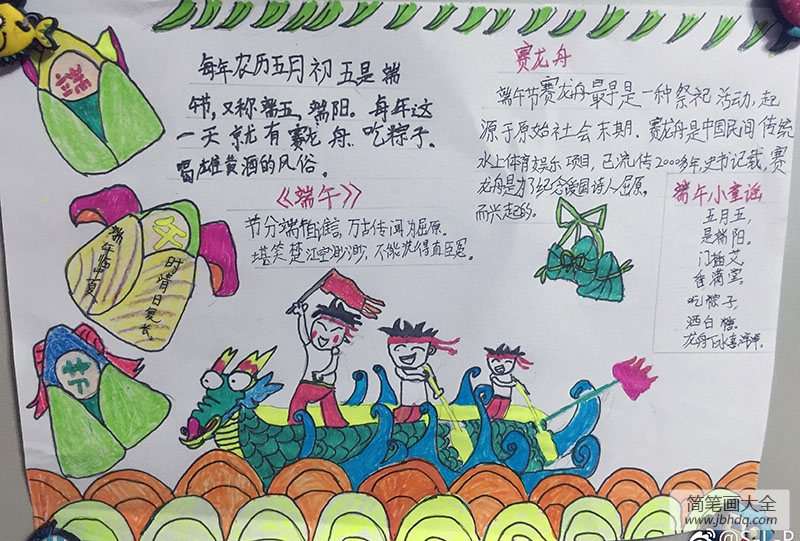 每年农历五月初五是端
午节,又称端五,端阳。每年这
一天就有赛龙舟、吃粽子、
喝雄黄酒的风俗。
《端午》
节分端午自谁言,万古传闻为屈原。
堪笑楚江空渺渺,不能洗得直臣冤。
赛龙舟
端午节赛龙舟最早是一种祭祀活动,起
源于原始社会末期。赛龙舟是中国民间传统
水上体育娱乐项目,已流传2000多年,史书记载,赛
龙舟是为了纪念爱国诗人屈原
而兴起的。
端午小童谣
五月五,
是端阳。
门插艾,
香满堂。
吃粽子,
洒白糖。
龙舟下水喜洋洋。
端午临中夏,
午
时清日复长。
节
简笔画大全
www.jbhdq.com